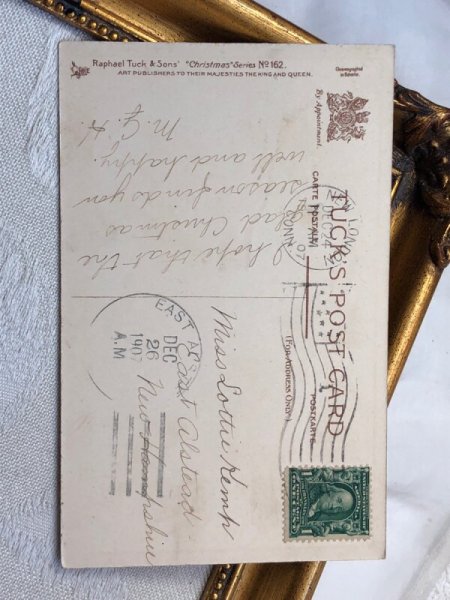 Raphael Tuck & Sons' "Christmas" Series No 162.
ART PUBLISHERS TO THEIR MAJESTIES THE KING AND QUEEN.
Chromographed
in Saxony.
By Appointment.
TUCK'S POST CARD
CARTE POSTALE
POSTKARTE
(FOR ADDRESS ONLY)
I hope that the
glad Christmas
season finds you
well and happy.
M. G. H.
Miss Lottie Kemp
East Alstead
New Hampshire
DEC 24
CONN
07
EAST
DEC
26
1907
A.M